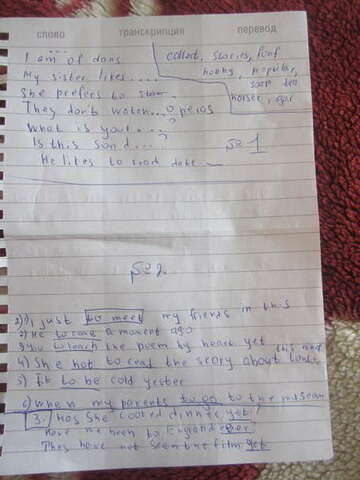 слово транскрипция перевод
I am of dans collect, stories, fond
My sister likes.... hobby, popular,
She prefers to soap
They don't watch... operas
What is your...?
Is this sand... №1
He likes to read date
№2
1) I just to meet my friends in this
2) He to come a moment ago
3) You to leach the poem by heart yet
4) She not to read the story about this
5) It to be cold yester
6) When my parents to go to the museum
3. Has she cooked dinner yet
Have we been to England ever
They have not seen the film yet